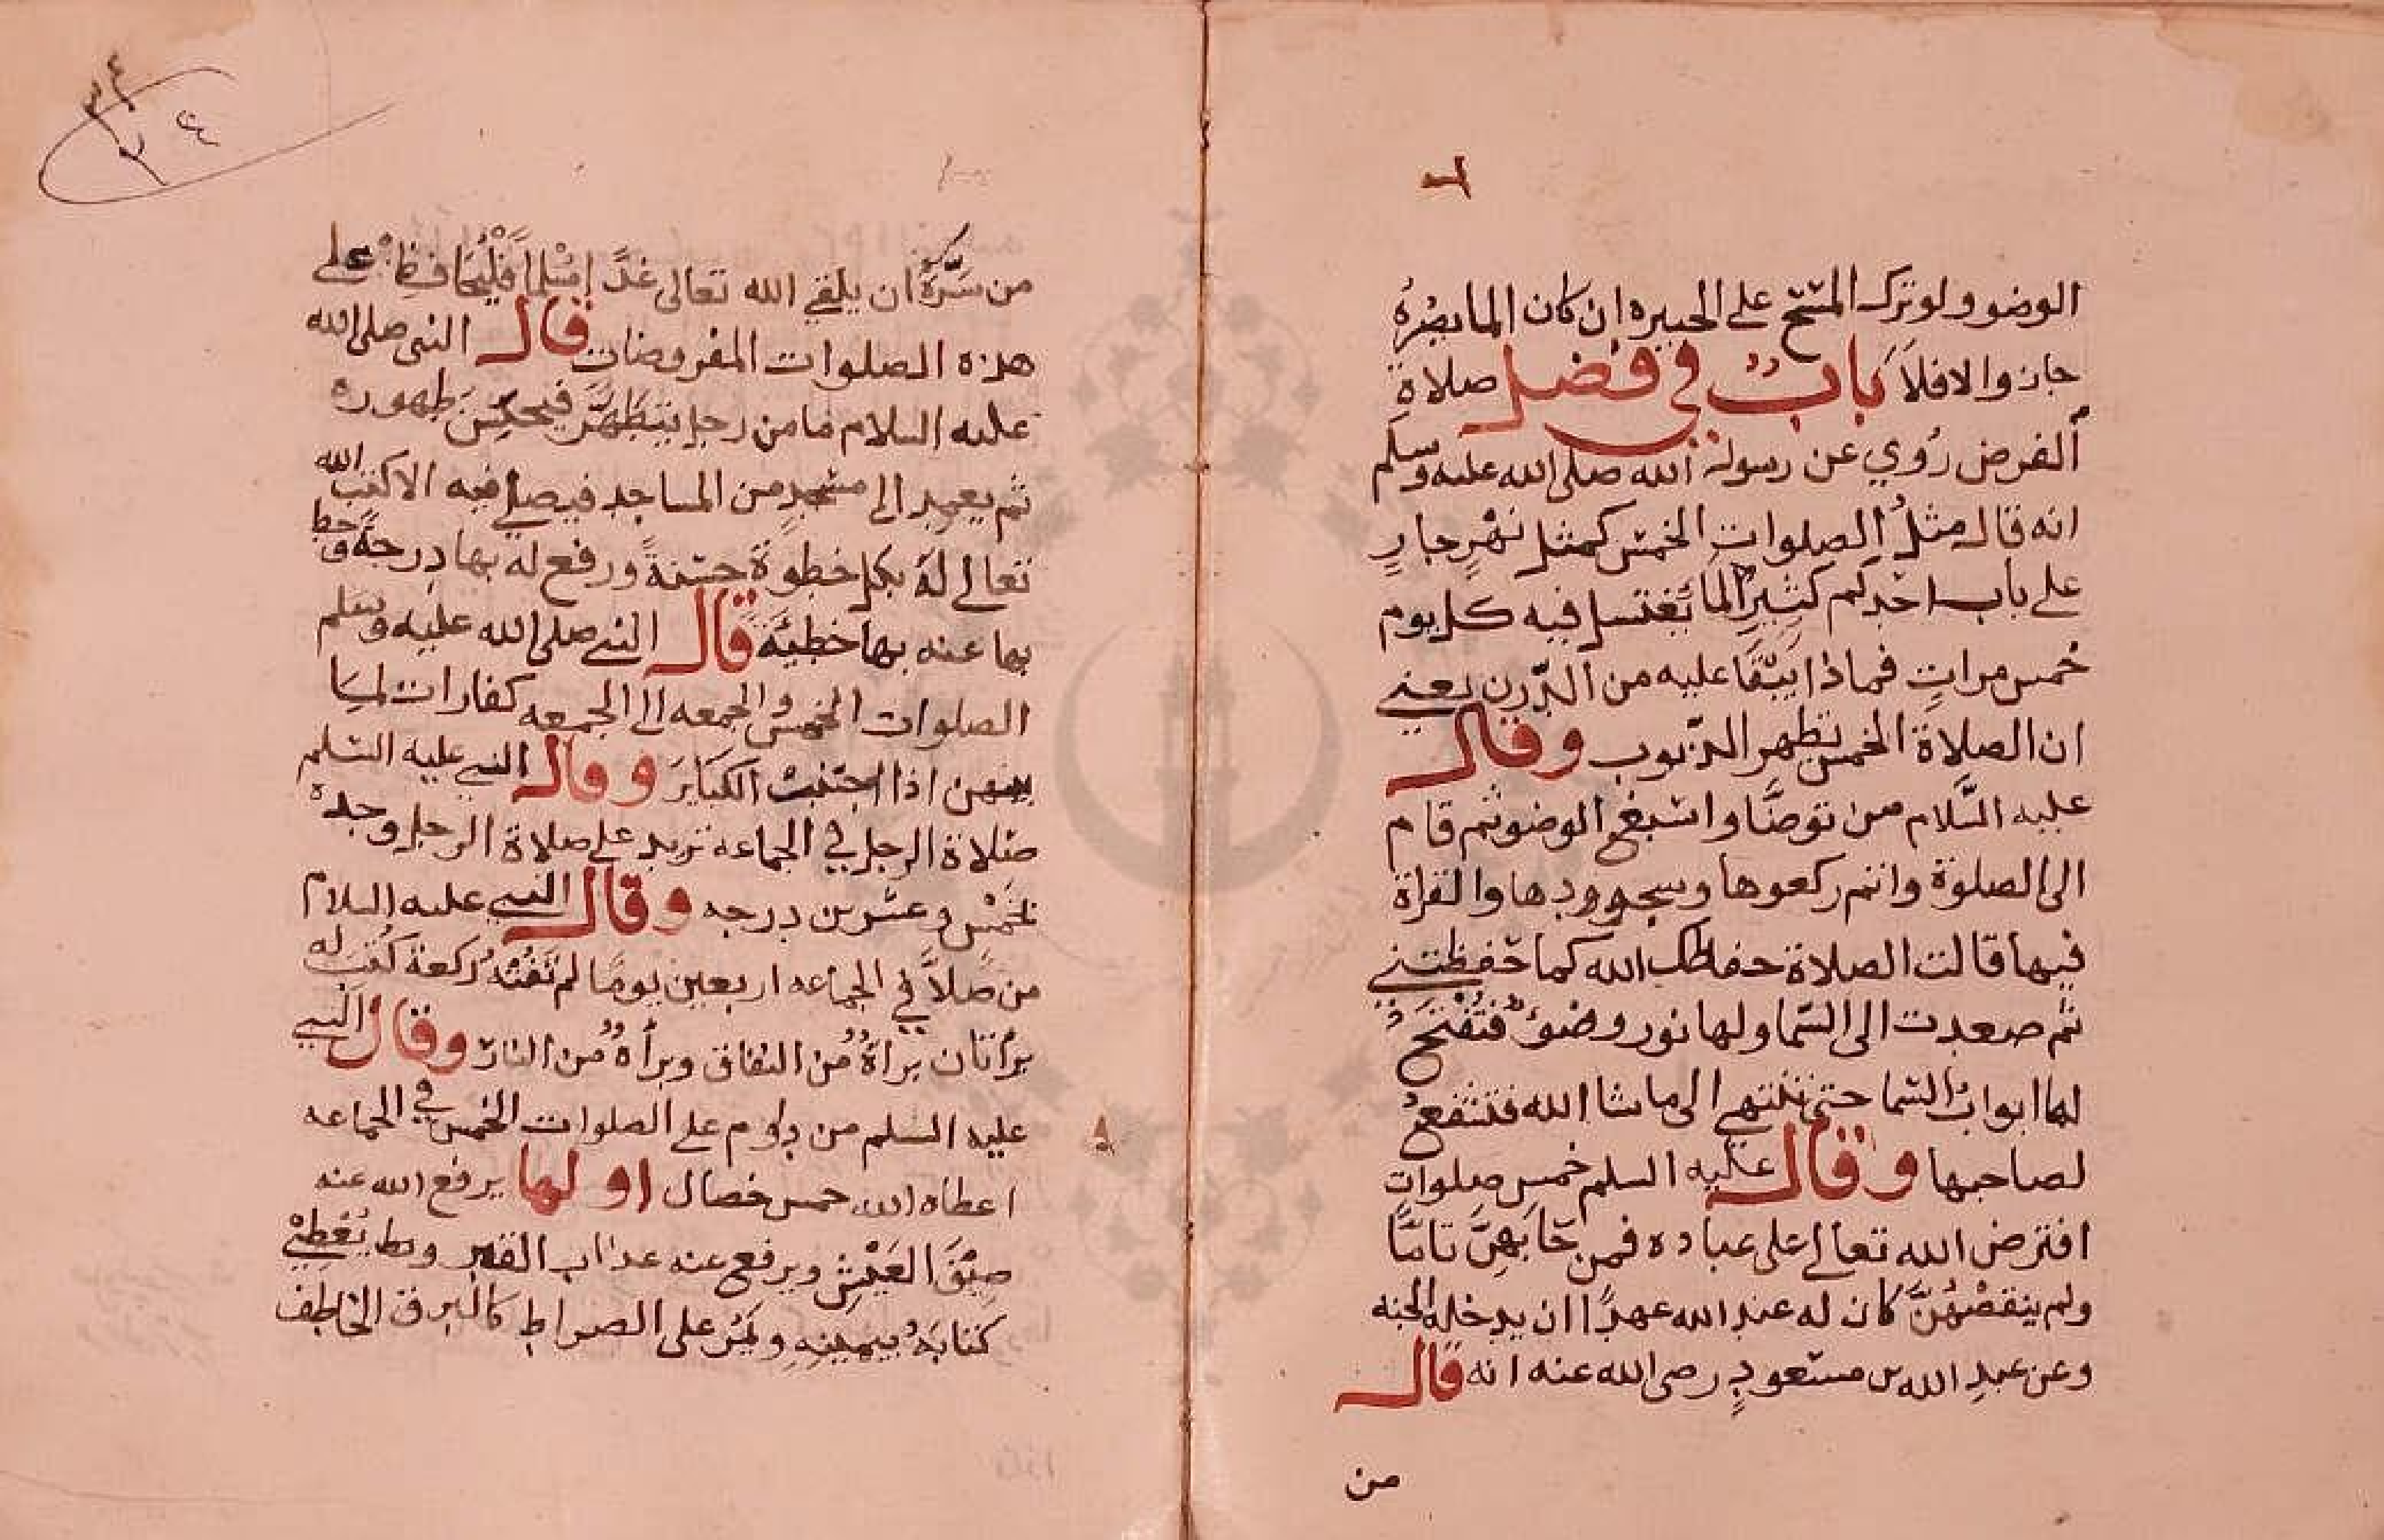 الوضو ولو ترك المسح على الجبيره ان كان الما يضره
جاز والا فلا باب في فضل صلاة
الفرض روي عن رسول الله صلى الله عليه وسلم
انه قال مثل الصلوات الخمس كمثل نهر جار
على باب احدكم كثير الما يغتسل فيه كل يوم
خمس مرات فماذا يبقا عليه من الدرن يعني
ان الصلاة الخمس تطهر الذنوب وقال
عليه السلام من توضا واسبغ الوضو ثم قام
الى الصلوة واتم ركعوها وسجوودها والقراة
فيها قالت الصلاة حفظك الله كما حفظتني
ثم صعدت الى السما ولها نور وضو فتفتح
لها ابواب السما حتى تنتهي الى ما شا الله فتشفع
لصاحبها وقال عليه السلم خمس صلوات
افترض الله تعالى على عباده فمن جا بهن تاما
ولم ينقصهن كان له عند الله عهدا ان يدخله الجنه
وعن عبد الله بن مسعود رضى الله عنه انه قال
من
من سره ان يلقي الله تعالى غدا مسلما فليحافظ على
هذه الصلوات المفروضات قال النبى صلى الله
عليه السلام ما من رجل يتطهر فيحسن طهوره
ثم يعمد الى مسجد من المساجد فيصلي فيه الا كتب الله
تعالى له بكل خطوة حسنة ورفع له بها درجة وحط
بها عنه بها خطية قال النبي صلى الله عليه وسلم
الصلوات الخمس والجمعه الى الجمعه كفارات لما
بينهن اذا اجتنبت الكباير وقال النبي عليه السلم
صلاة الرجل في الجماعه تزيد على صلاة الرجل وحده
بخمس وعشرين درجه وقال النبي عليه السلام
من صلا في الجماعه اربعين يوما لم تفته ركعة كتب له
براتان براة من النفاق وبراة من النار وقال النبي
عليه السلم من داوم على الصلوات الخمس في الجماعه
اعطاه الله خمس خصال اولها يرفع الله عنه
ضيق العيش ويرفع عنه عذاب القبر ويعطي
كتابه بيمينه ويمر على الصراط كالبرق الخاطف